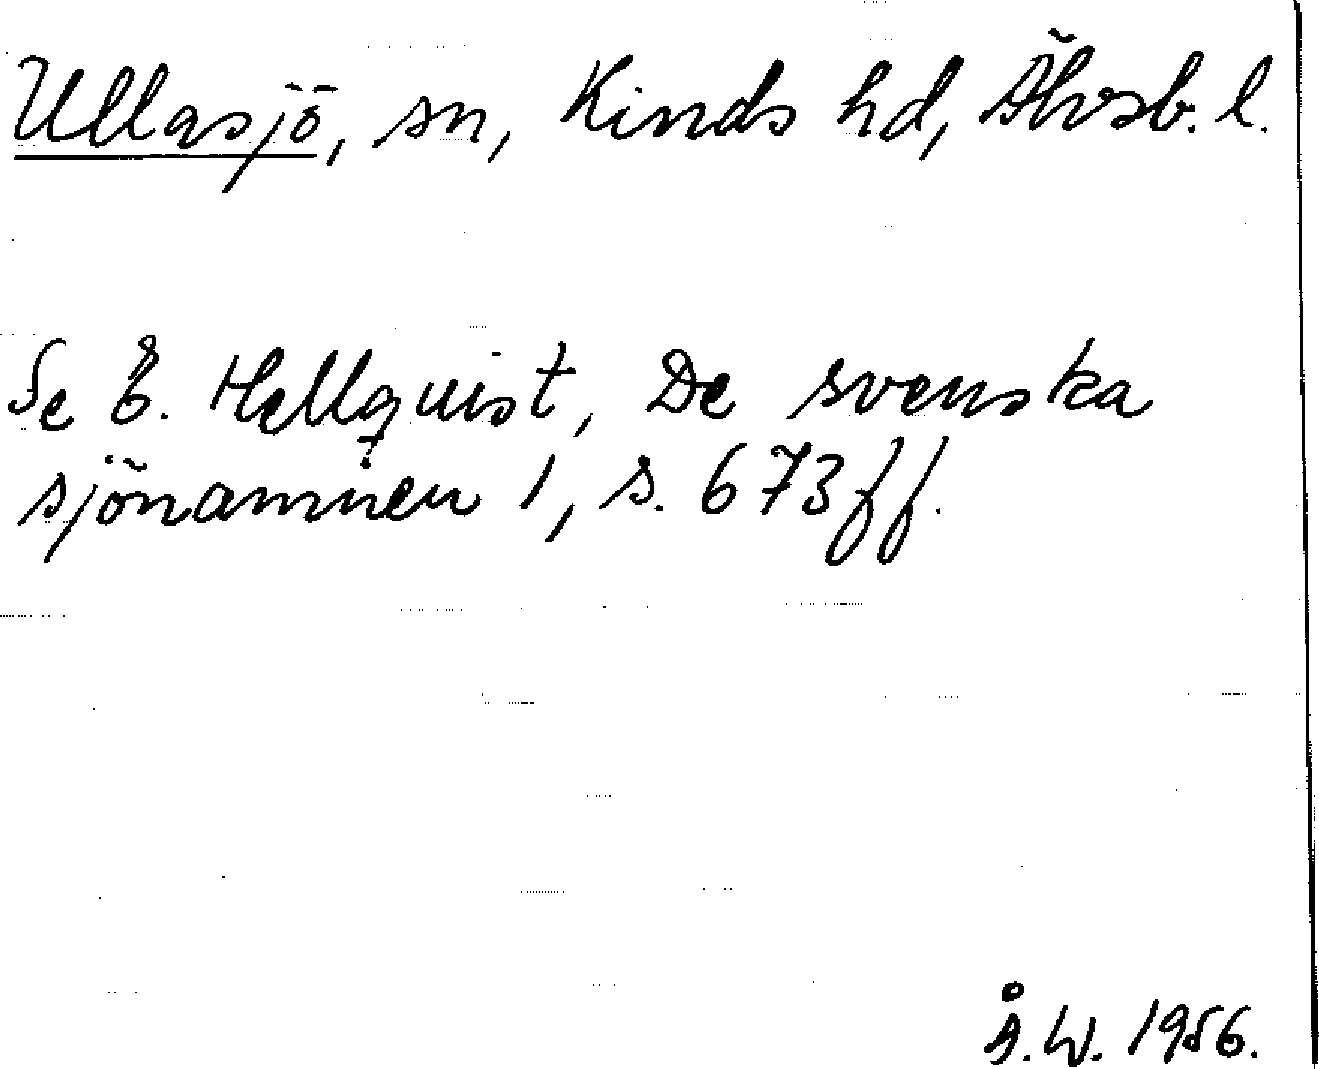 Ullasjö, sn, Kinds hd, Älvsb. l.
Se E. Hellquist, De svenska
sjönamnen 1, s. 673 ff.
Å.W. 1956.